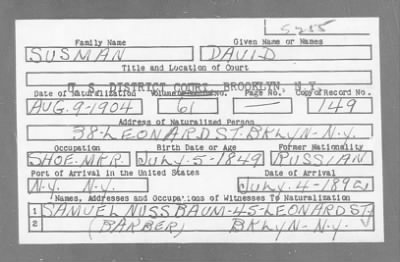 5255
Family Name Given Name or Names
SUSMAN DAVID
Title and Location of Court
U. S. DISTRICT COURT BROOKLYN N.Y.
Date of Naturalization Volume No. Page No. Copy of Record No.
AUG. 9-1904 61 — 149
Address of Naturalized Person
38-LEONARD ST. BKLYN-N.Y.
Occupation Birth Date or Age Former Nationality
SHOE-MKR. JULY-5-1849 RUSSIAN
Port of Arrival in the United States Date of Arrival
N.Y. N.Y. JULY-4-
Names, Addresses and Occupations of Witnesses To Naturalization
1 SAMUEL NUSSBAUM-45-LEONARD ST.
2 (BARBER) BKLYN-N.Y.